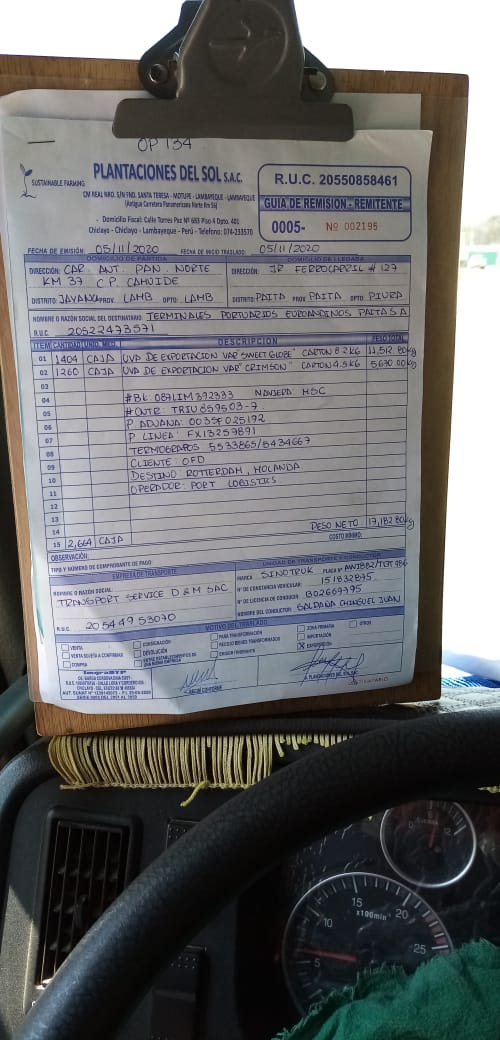 OP 134
SUSTAINABLE FARMING
PLANTACIONES DEL SOL S.A.C.
CAR. REAL NRO. S/N FND. SANTA TERESA - MOTUPE - LAMBAYEQUE - LAMBAYEQUE
(Antigua Carretera Panamericana Norte Km 56)
Domicilio Fiscal: Calle Torres Paz N° 653 Piso 4 Dpto. 401
Chiclayo - Chiclayo - Lambayeque - Perú - Telefono: 074-233570
R.U.C. 20550858461
GUIA DE REMISIÓN - REMITENTE
0005- Nº 002195
FECHA DE EMISIÓN: 05/11/2020 FECHA DE INICIO TRASLADO: 05/11/2020
DOMICILIO DE PARTIDA DOMICILIO DE LLEGADA
DIRECCIÓN: CAR. ANT. PAN. NORTE DIRECCIÓN: JR FERROCARRIL # 127
KM 37 C.P. CAHUIDE
DISTRITO: JAYANCA PROV. LAMB DPTO: LAMB DISTRITO: PAITA PROV. PAITA DPTO PIURA
NOMBRE O RAZÓN SOCIAL DEL DESTINATARIO TERMINALES PORTUARIOS EUROANDINOS PAITA S.A
R.U.C. 20522473571
ITEM CANTIDAD UNID. MED. DESCRIPCION PESO TOTAL
01 1404 CAJA UVA DE EXPORTACION VAR "SWEET GLOBE" CARTON 8.2 KG 11,512.80 kg
02 1260 CAJA UVA DE EXPORTACION VAR "CRIMSON" CARTON 4.5 KG 5670.00 kg
03
04 #BK 087LIM392333 NAVIERA MSC
05 #CNTR: TRIU 859503-7
06 P. ADUANA: 0035F025192
07 P LINEA: FX13259891
08 TERMOGRAFOS 5533865/5434667
09 CLIENTE: OFD
10 DESTINO ROTTERDAM, HOLANDA
11 OPERADOR: PORT LOGISTICS
12
13
14 PESO NETO 17,182.80 kg
15 2,664 CAJA COSTO MINIMO:
OBSERVACIÓN:
TIPO Y NUMERO DE COMPROBANTE DE PAGO
EMPRESA DE TRANSPORTE UNIDAD DE TRANSPORTE Y CONDUCTOR
NOMBRE O RAZON SOCIAL: MARCA SINOTRUK PLACA N°
TRANSPORT SERVICE D & M SAC N° DE CONSTANCIA VEHICULAR: 151832895
N° DE LICENCIA DE CONDUCIR B02669795
R.U.C. 20544953070 NOMBRE DEL CONDUCTOR: SALDAÑA CHINGUEL JUAN
MOTIVO DEL TRASLADO
VENTA CONSIGNACIÓN PARA TRANSFORMACIÓN ZONA PRIMARIA OTROS
VENTA SUJETA A CONFIRMAR DEVOLUCIÓN RECOJO BIENES TRANSFORMADOS IMPORTACIÓN
COMPRA ENTRE ESTABLECIMIENTOS DE UNA MISMA EMPRESA EMISOR ITINERANTE X EXPORTACIÓN
RECIBI CONFORME P. PLANTACIONES DEL SOL SAC
DESTINATARIO
0 12
5 10 15 20 25
x100min⁻¹